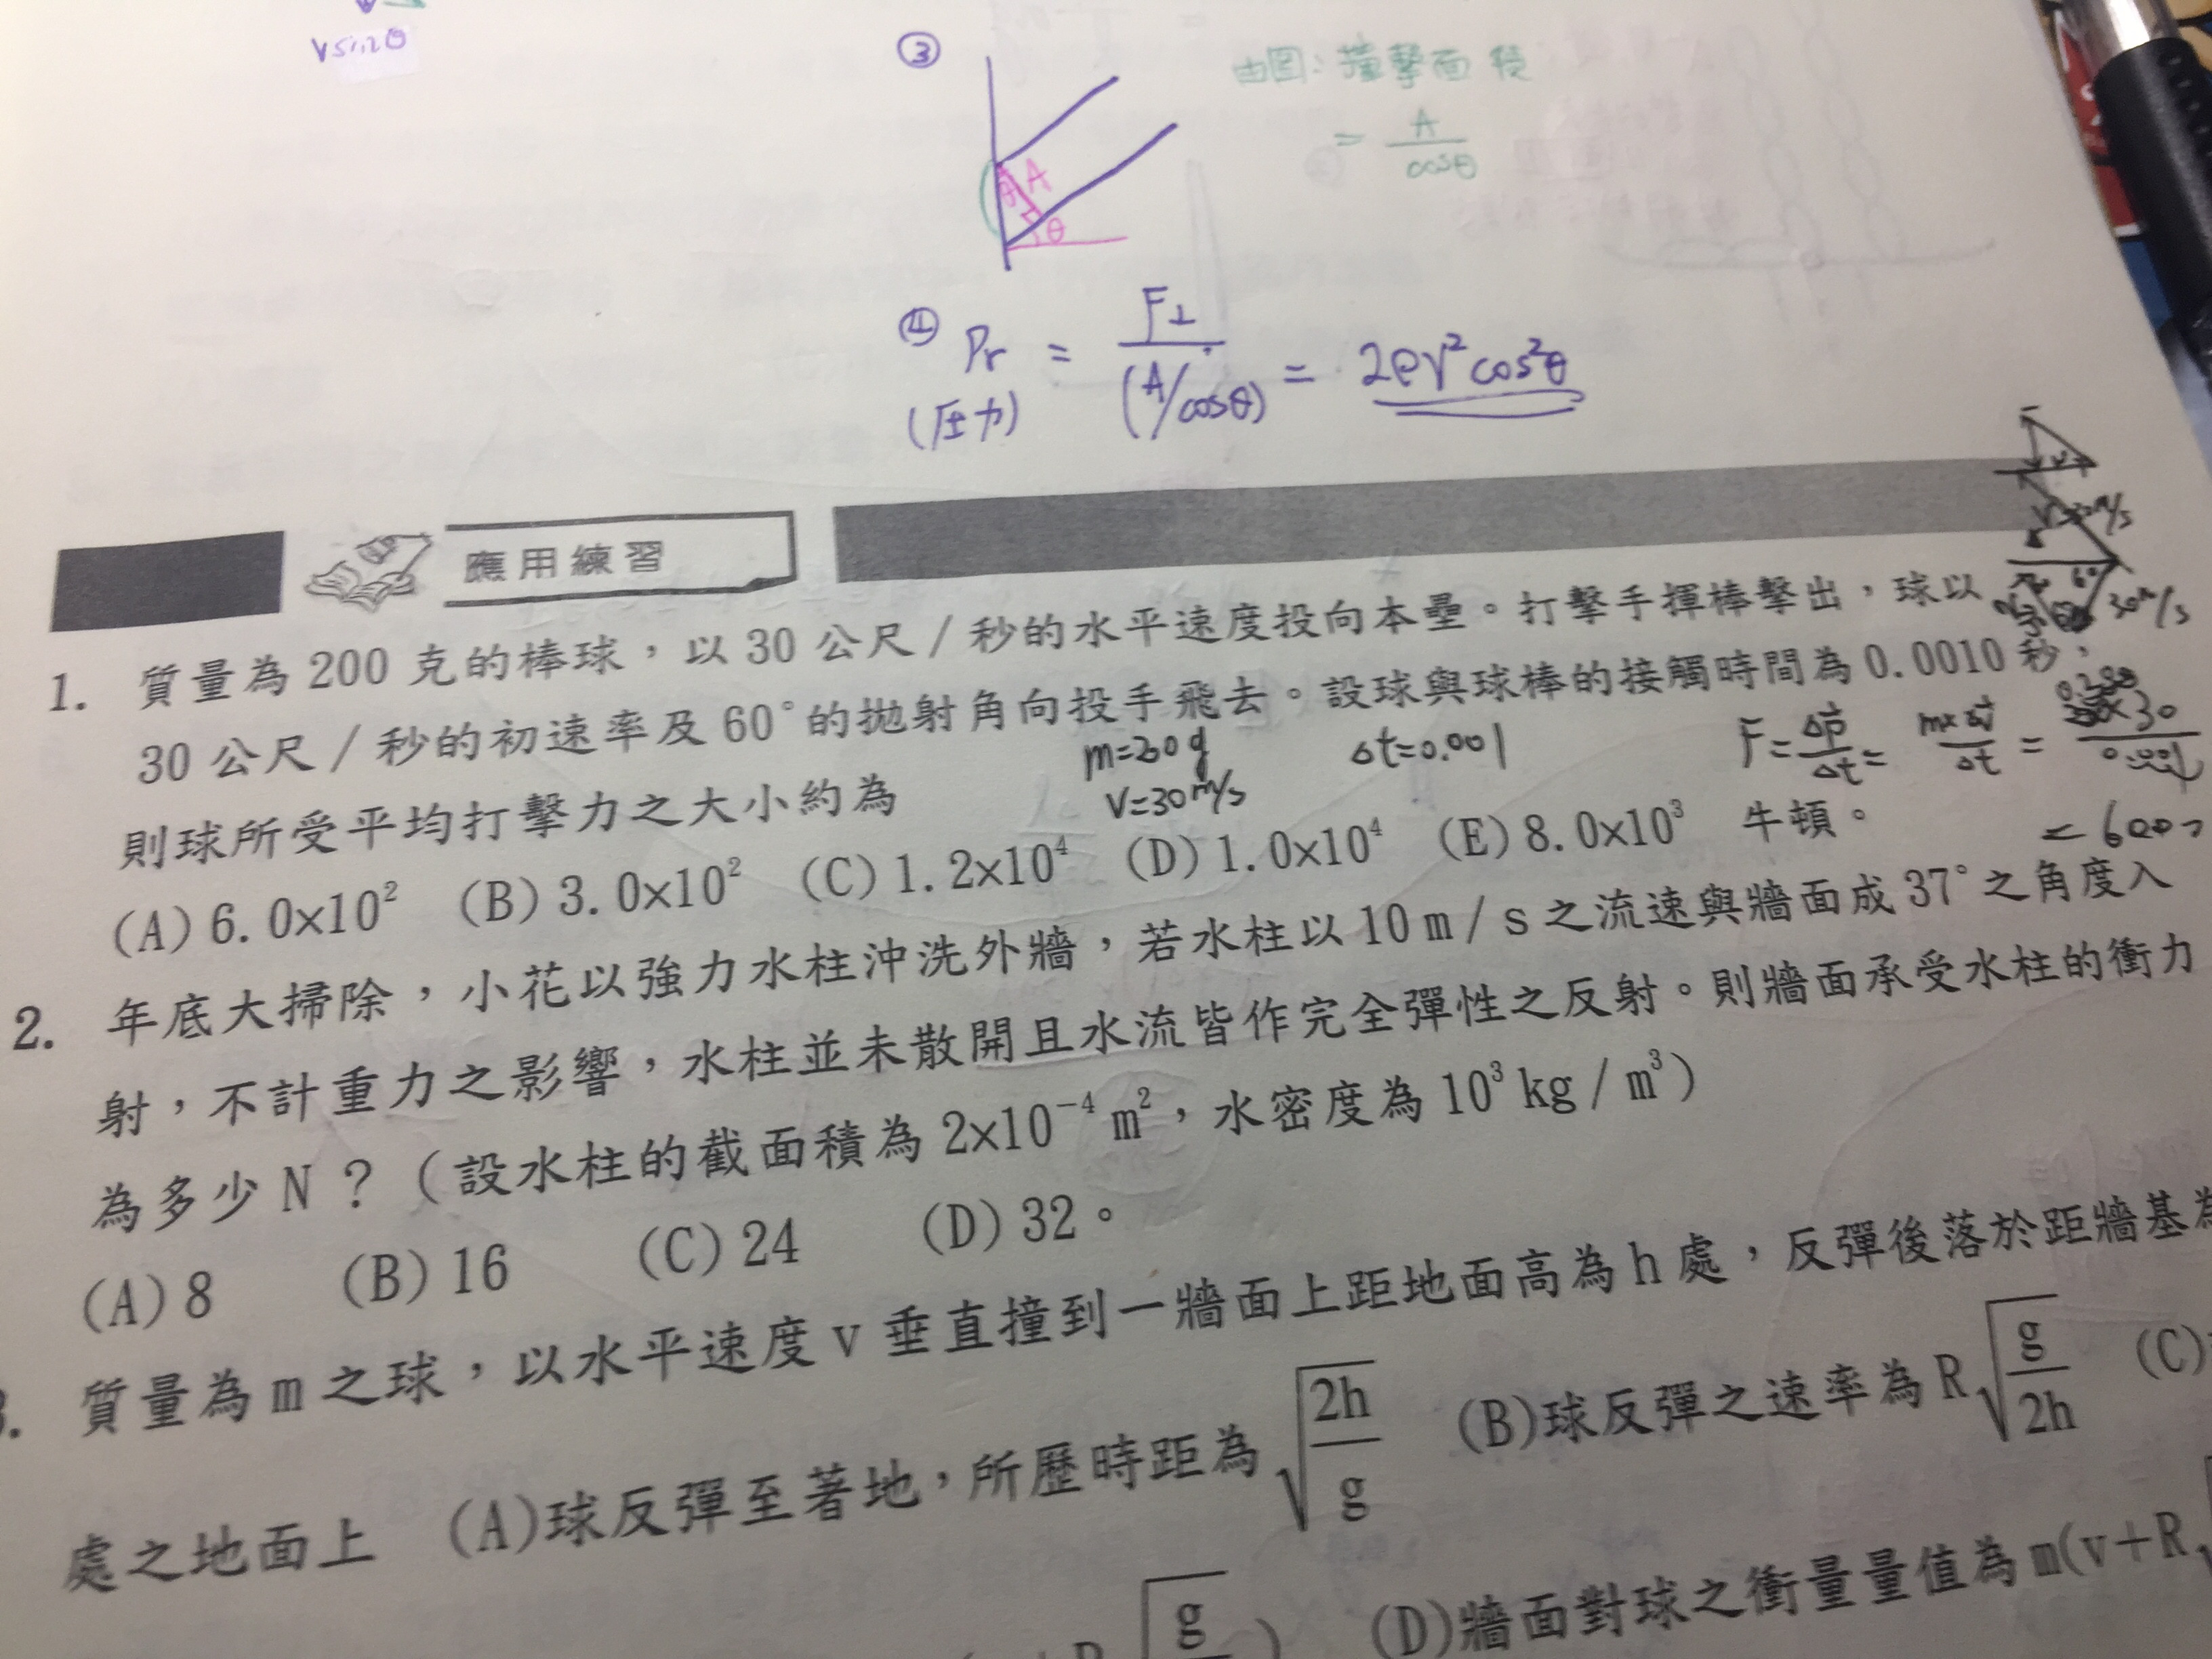 vsin2θ
③
由图：撞擊面積
= A/cosθ
A
θ
θ
④ Pr = F⊥/(A/cosθ) = 2ρv²cos²θ
(压力)
應用練習
1. 質量為 200 克的棒球，以 30 公尺／秒的水平速度投向本壘。打擊手揮棒擊出，球以
30 公尺／秒的初速率及 60°的拋射角向投手飛去。設球與球棒的接觸時間為 0.0010 秒，
則球所受平均打擊力之大小約為
m=200g
v=30m/s
Δt=0.001
F = Δp/Δt = m×Δv/Δt = ×30/0.001
= 6000
60°
30m/s
(A) 6.0×10² (B) 3.0×10² (C) 1.2×10⁴ (D) 1.0×10⁴ (E) 8.0×10³ 牛頓。
2. 年底大掃除，小花以強力水柱沖洗外牆，若水柱以 10 m / s 之流速與牆面成 37°之角度入
射，不計重力之影響，水柱並未散開且水流皆作完全彈性之反射。則牆面承受水柱的衝力
為多少 N ？（設水柱的截面積為 2×10⁻⁴ m²，水密度為 10³ kg / m³）
(A) 8 (B) 16 (C) 24 (D) 32。
3. 質量為 m 之球，以水平速度 v 垂直撞到一牆面上距地面高為 h 處，反彈後落於距牆基為
處之地面上 (A)球反彈至著地，所歷時距為 √(2h/g) (B)球反彈之速率為 R√(g/2h) (C)
√(g/ ) (D)牆面對球之衝量量值為 m(v＋R√